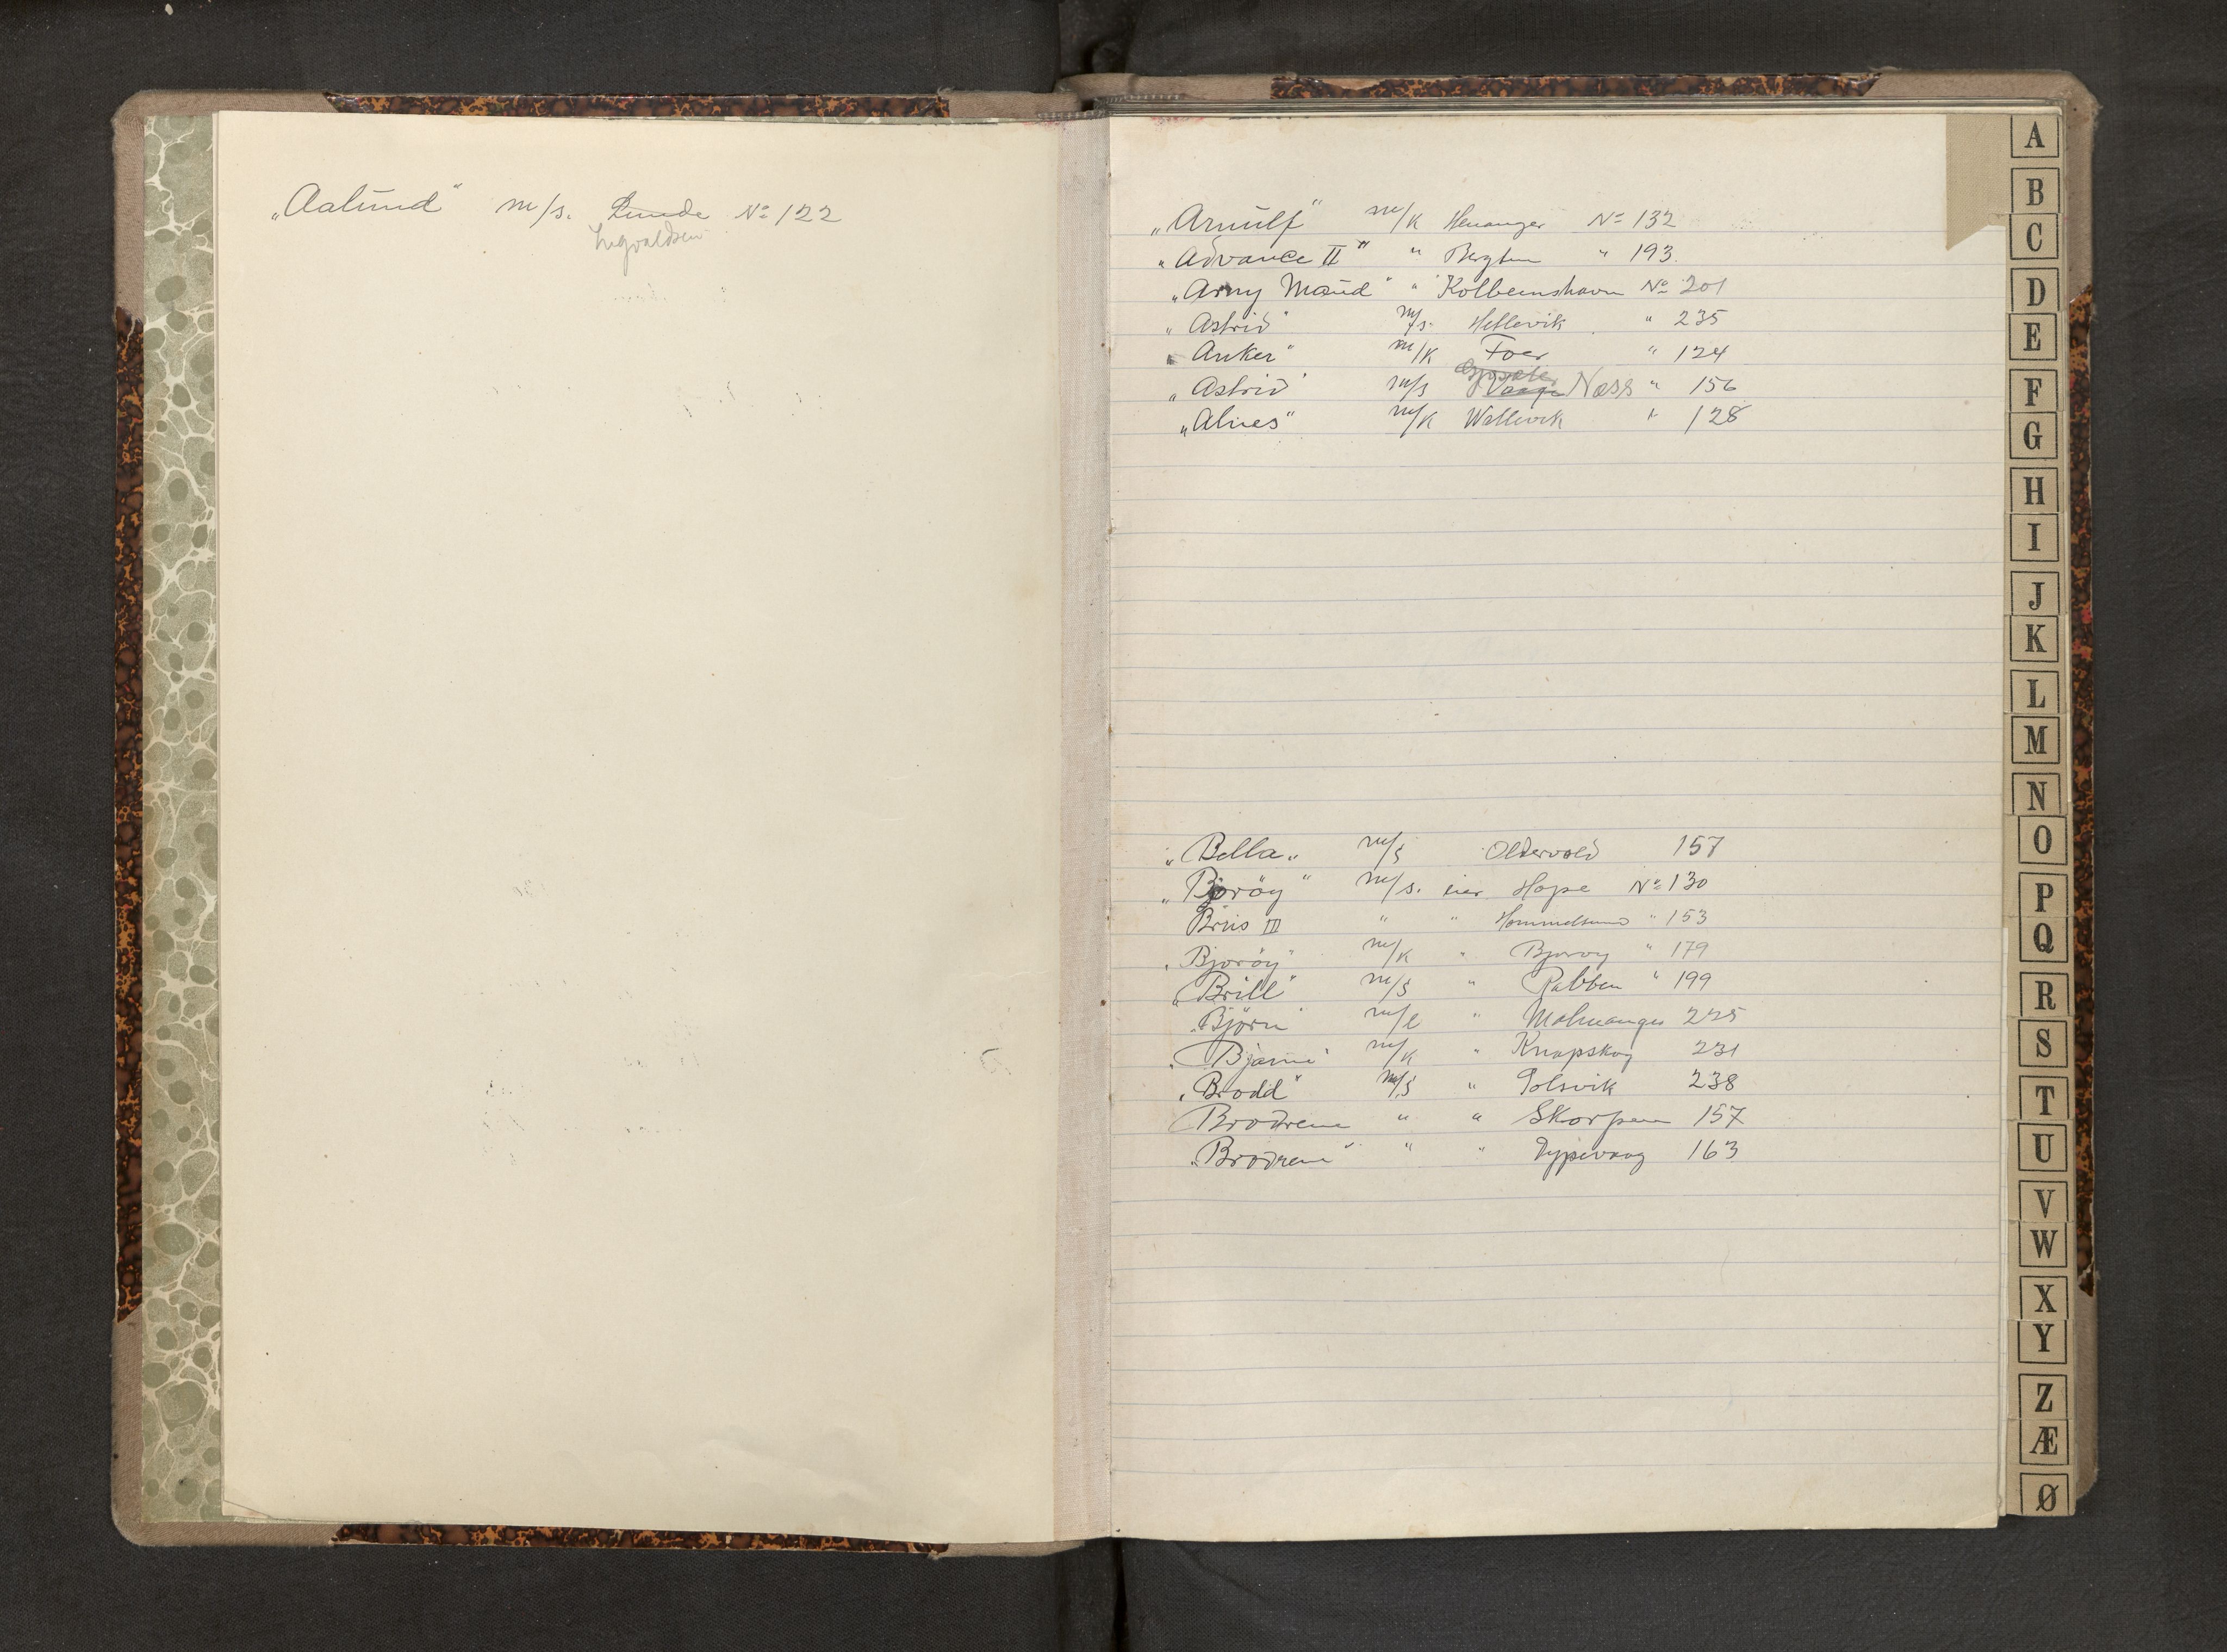 „Aalund“ m/s. Lunde No 122
Ingvaldsen
„Arnulf“ m/k Henanger No 132
„Advance II“ " " 193.
„Arny Maud“ " Kolbeinshavn No 201
„Astrid“ m/s. Hellevik " 235
„Anker“ m/k Foer " 124
„Astrid“ m/s Vaage Næss " 156
„Alnes“ m/k Wallevik " 128
„Bella„ m/s Oldervold 157
„Bjorøy“ m/s. eier Hope No 130
Bris III " " Hommelsund " 153
„Bjorøy“ m/k " Bjorøy " 179
„Brill“ m/s " Rabben " 199
„Bjørn“ m/l " Malmanger 225
„Bjarne“ m/k " Knapskog 231
„Brodd“ m/s " Solsvik 238
Brodrene " " Skorpen 157
„Brodrene“ " " Dypevaag 163
A
B
C
D
E
F
G
H
I
J
K
L
M
N
O
P
Q
R
S
T
U
V
W
X
Y
Z
Æ
Ø